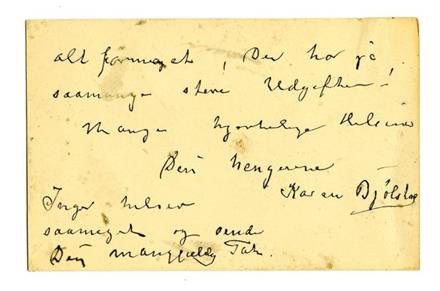 alt formeget, Der har jo
saamange store Udgifter!
Mange hjertelige Hilsener
Din hengivne
Karen Bjølstad
Inger hilser
saameget og sende
Dig mangfoldig Tak.